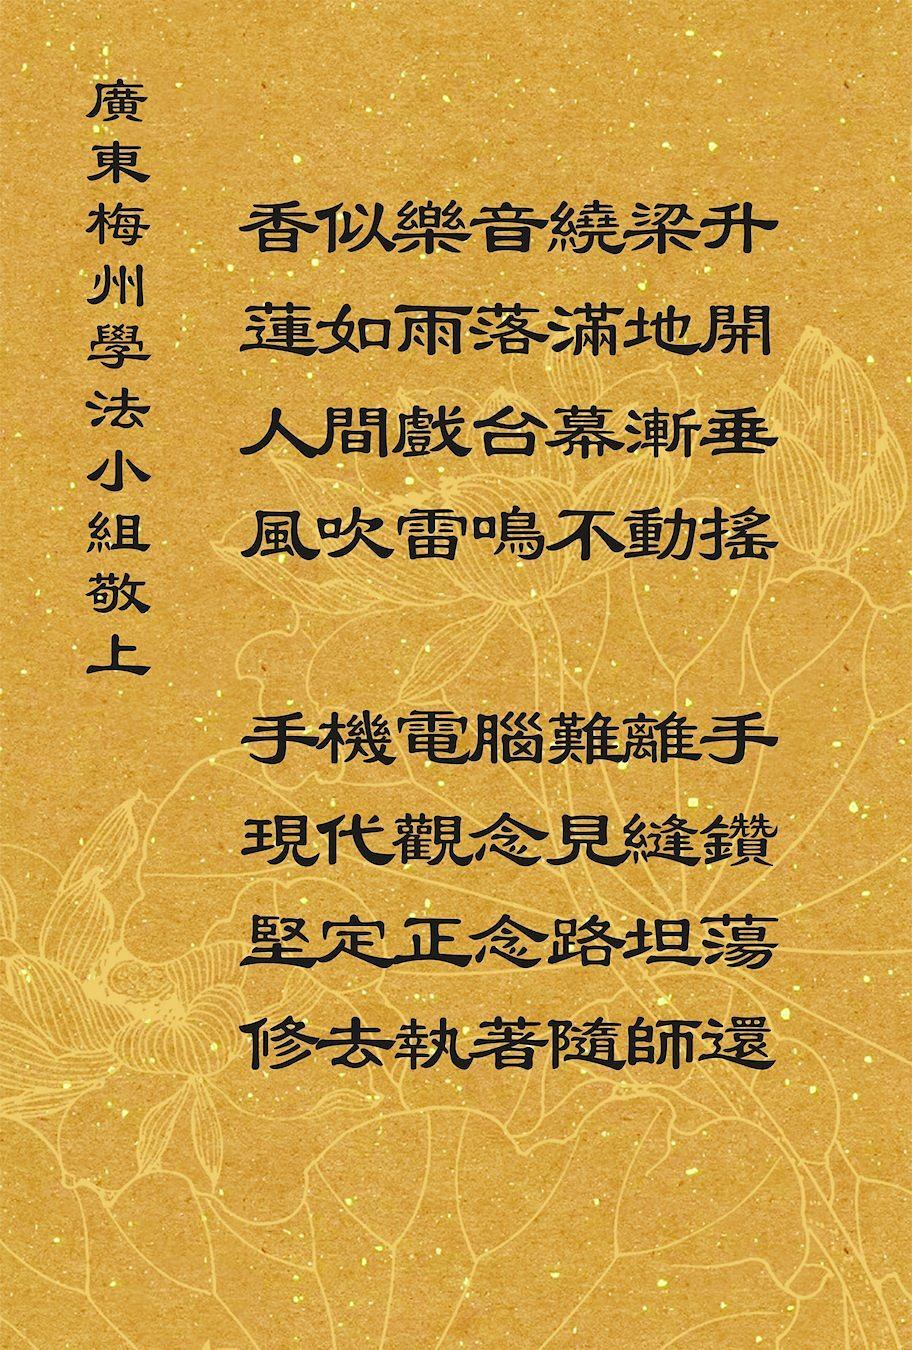 香似樂音繞梁升
蓮如雨落滿地開
人間戲台幕漸垂
風吹雷鳴不動搖
手機電腦難離手
現代觀念見縫鑽
堅定正念路坦蕩
修去執著隨師還
廣東梅州學法小組敬上